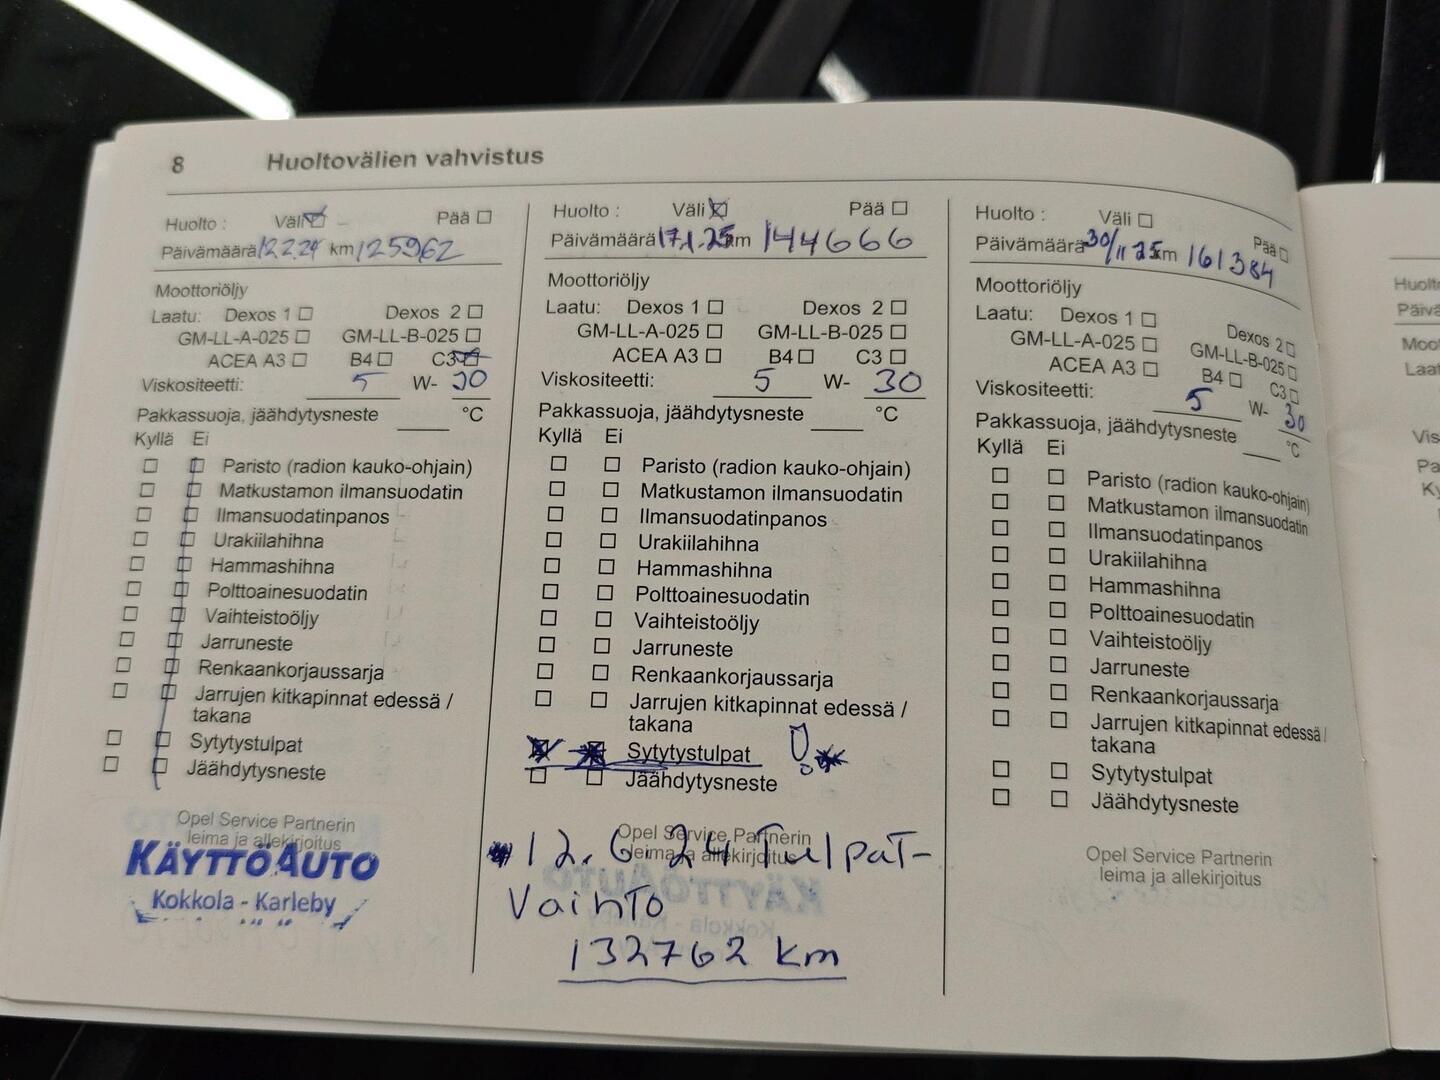 8 Huoltovälien vahvistus
Huolto : Väli Pää
Päivämäärä 12.2.24 km 125962
Moottoriöljy
Laatu: Dexos 1 Dexos 2
GM-LL-A-025 GM-LL-B-025
ACEA A3 B4 C3
Viskositeetti: 5 W- 30
Pakkassuoja, jäähdytysneste °C
Kyllä Ei
Paristo (radion kauko-ohjain)
Matkustamon ilmansuodatin
Ilmansuodatinpanos
Urakiilahihna
Hammashihna
Polttoainesuodatin
Vaihteistoöljy
Jarruneste
Renkaankorjaussarja
Jarrujen kitkapinnat edessä /
takana
Sytytystulpat
Jäähdytysneste
Opel Service Partnerin
leima ja allekirjoitus
KÄYTTÖAUTO
Kokkola - Karleby
Huolto : Väli Pää
Päivämäärä 17.1.25 km 144666
Moottoriöljy
Laatu: Dexos 1 Dexos 2
GM-LL-A-025 GM-LL-B-025
ACEA A3 B4 C3
Viskositeetti: 5 W- 30
Pakkassuoja, jäähdytysneste °C
Kyllä Ei
Paristo (radion kauko-ohjain)
Matkustamon ilmansuodatin
Ilmansuodatinpanos
Urakiilahihna
Hammashihna
Polttoainesuodatin
Vaihteistoöljy
Jarruneste
Renkaankorjaussarja
Jarrujen kitkapinnat edessä /
takana
Sytytystulpat ! *
Jäähdytysneste
Opel Service Partnerin
leima ja allekirjoitus
* 12.6.24 Tulpat-
Vaihto
132762 km
Huolto : Väli Pää
Päivämäärä 30/11 25 km 161384
Moottoriöljy
Laatu: Dexos 1 Dexos 2
GM-LL-A-025 GM-LL-B-025
ACEA A3 B4 C3
Viskositeetti: 5 W- 30
Pakkassuoja, jäähdytysneste °C
Kyllä Ei
Paristo (radion kauko-ohjain)
Matkustamon ilmansuodatin
Ilmansuodatinpanos
Urakiilahihna
Hammashihna
Polttoainesuodatin
Vaihteistoöljy
Jarruneste
Renkaankorjaussarja
Jarrujen kitkapinnat edessä /
takana
Sytytystulpat
Jäähdytysneste
Opel Service Partnerin
leima ja allekirjoitus